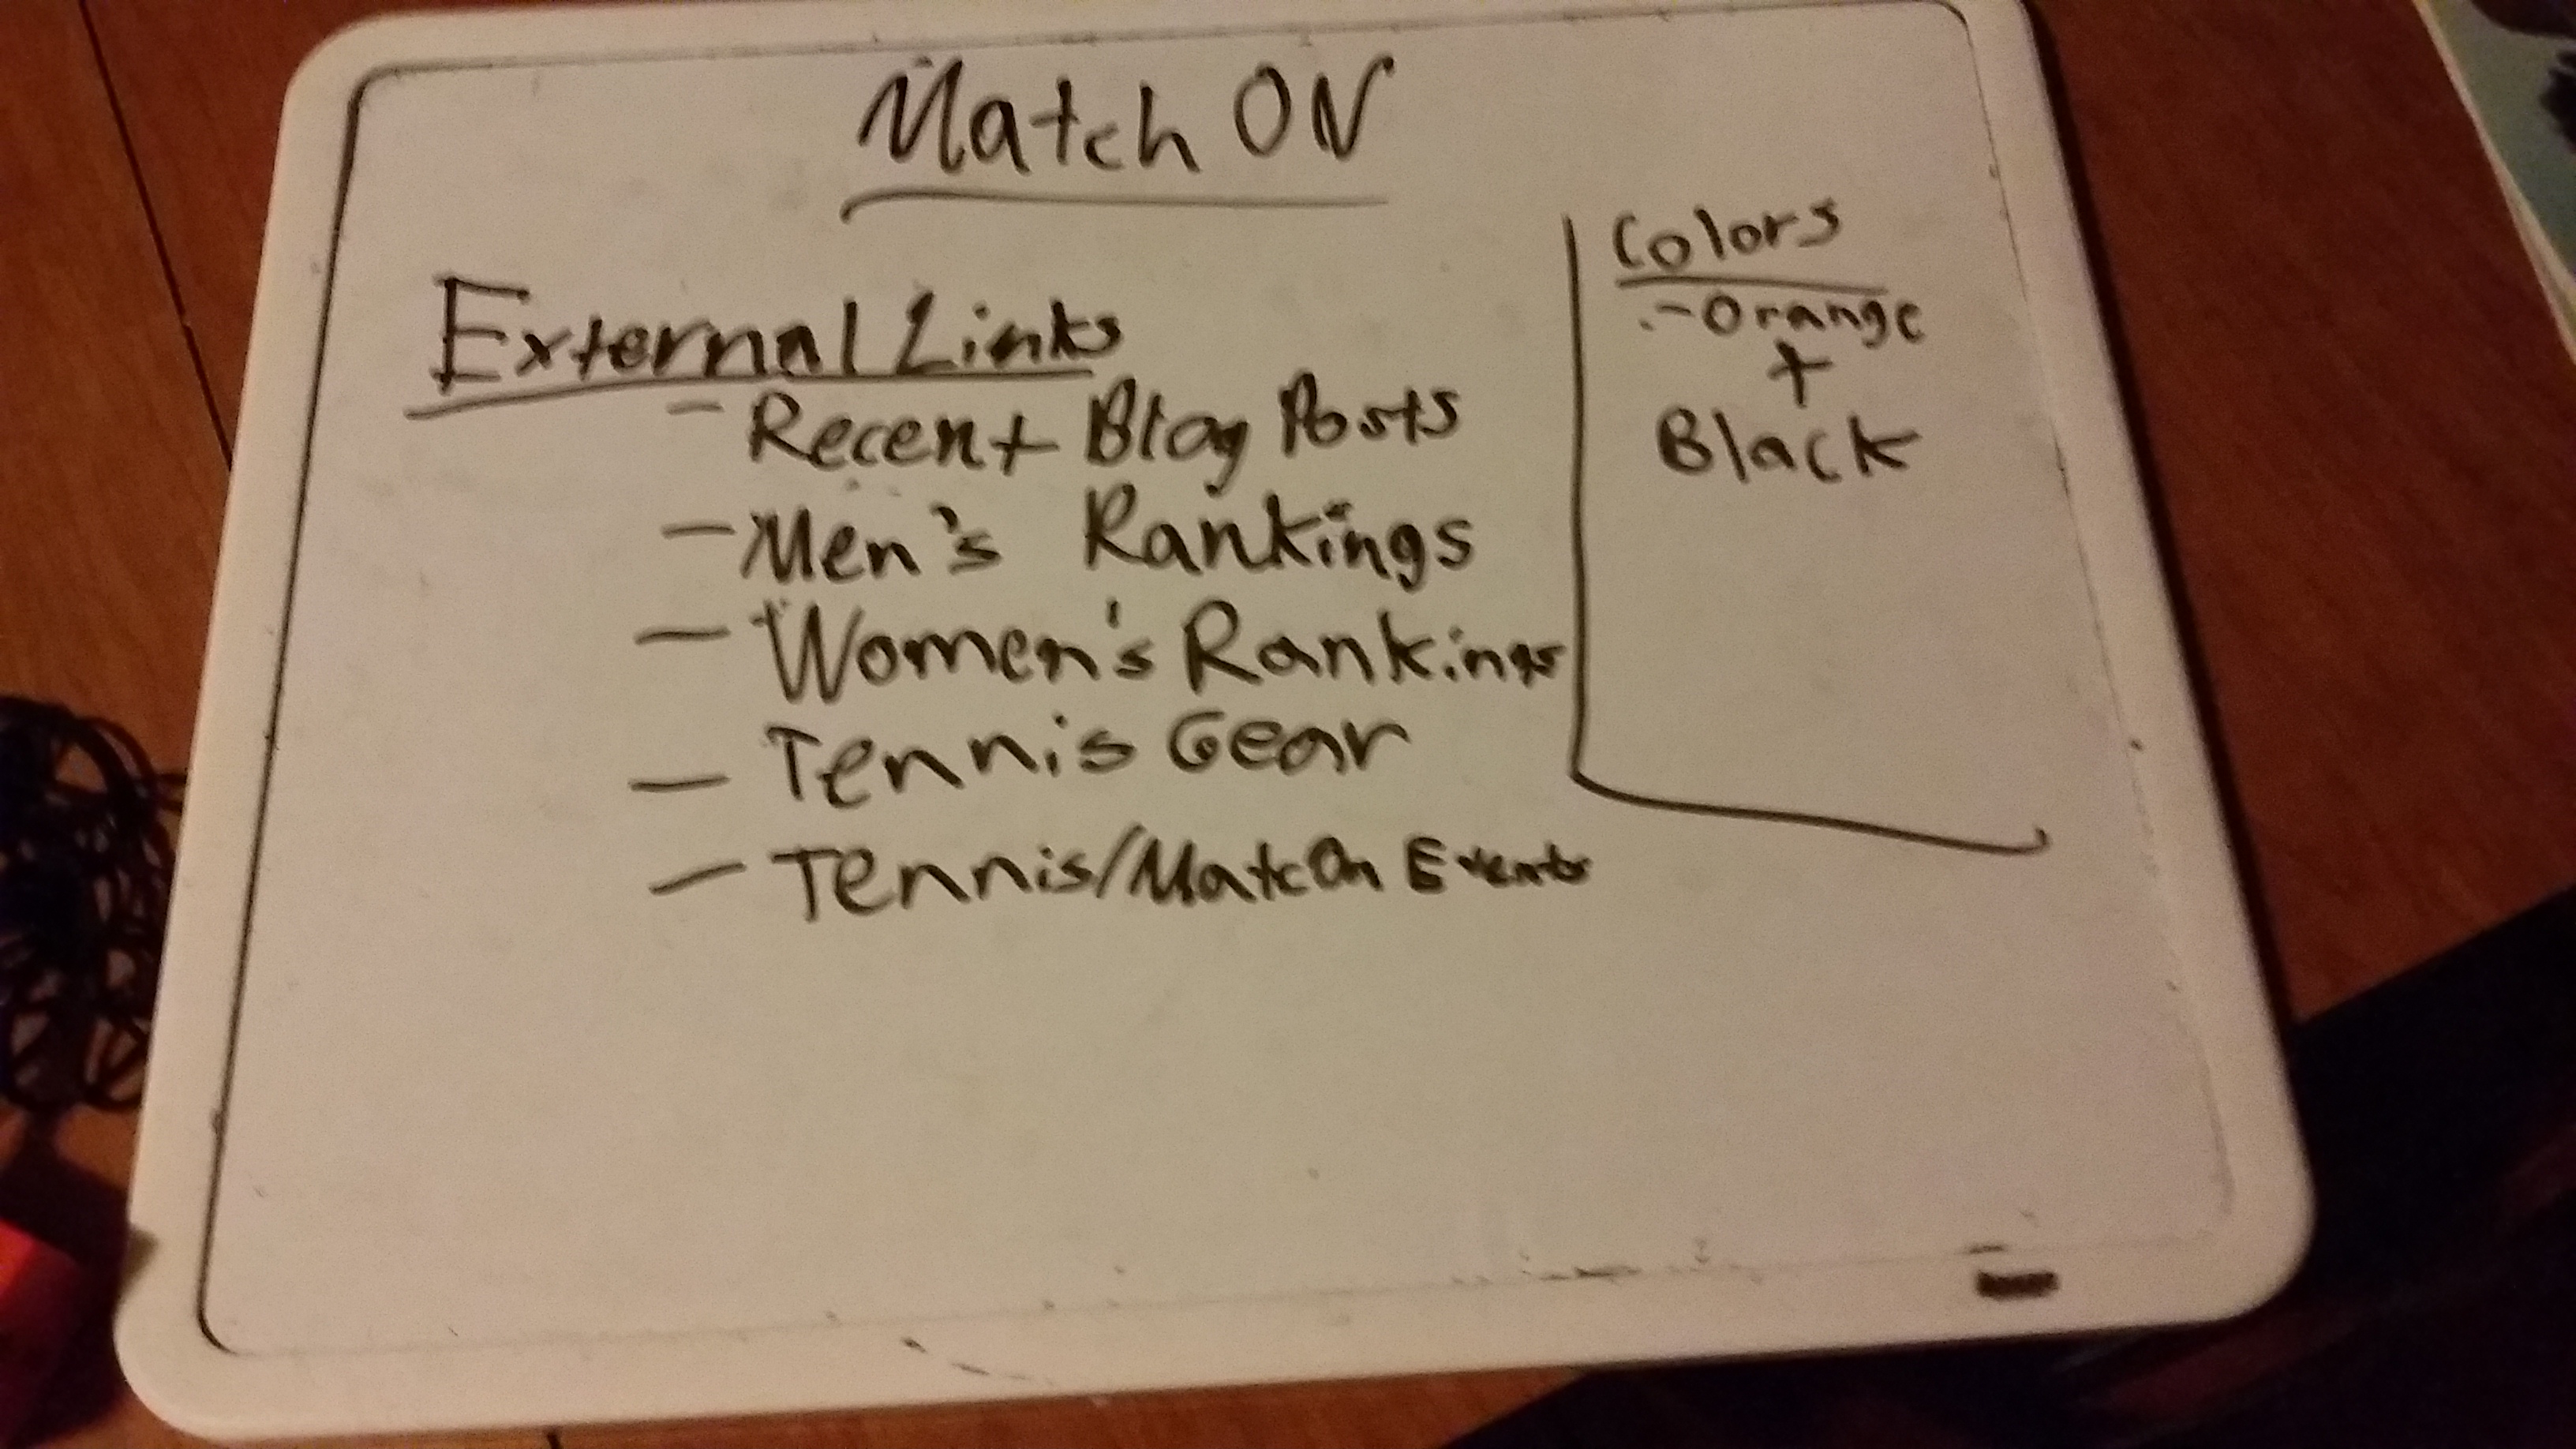 Match ON
External Links
- Recent Blog Posts
- Men's Rankings
- Women's Rankings
- Tennis Gear
- Tennis/MatcOn Events
Colors
- Orange
+
Black